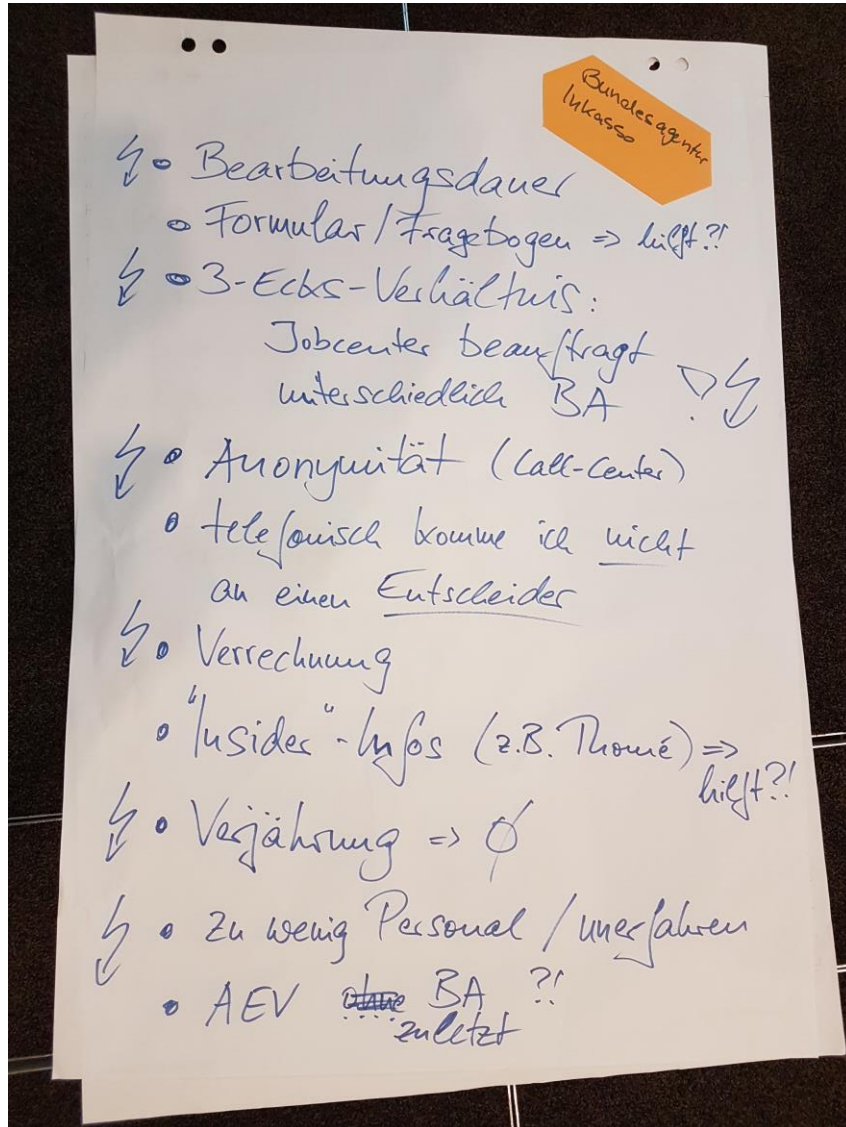 Bundesagentur
Inkasso
• Bearbeitungsdauer
• Formular / Fragebogen => hilft?!
• 3-Ecks-Verhältnis:
Jobcenter beauftragt
unterschiedlich BA
• Anonymität (Call-Center)
• telefonisch komme ich nicht
an einen Entscheider
• Verrechnung
• "Insider"-Infos (z.B. Thomé) =>
hilft?!
• Verjährung => Ø
• zu wenig Personal / unerfahren
• AEV ohne BA ?!
zuletzt